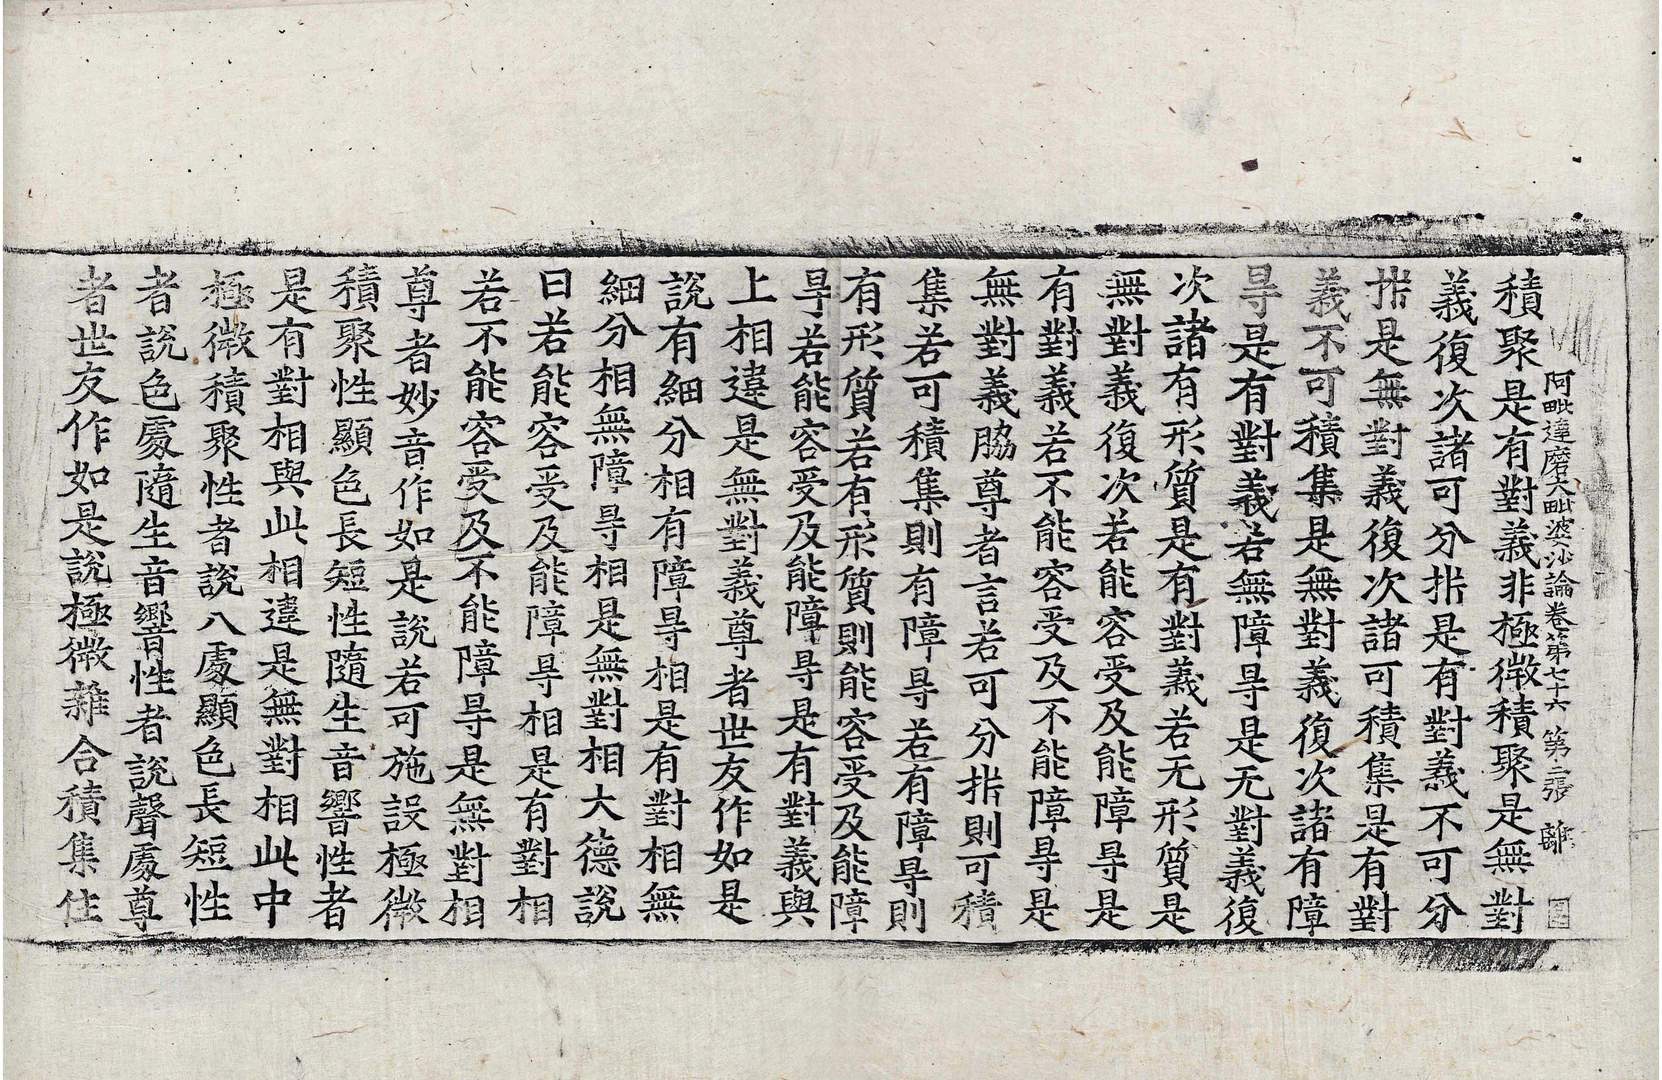 阿毗達磨大毗婆沙論卷第七十六 第二張 離
積聚是有對義非極微積聚是無對
義復次諸可分㭊是有對義不可分
㭊是無對義復次諸可積集是有對
義不可積集是無對義復次諸有障
㝵是有對義若無障㝵是无對義復
次諸有形質是有對義若无形質是
無對義復次若能容受及能障㝵是
有對義若不能容受及不能障㝵是
無對義脇尊者言若可分㭊則可積
集若可積集則有障㝵若有障㝵則
有形質若有形質則能容受及能障
㝵若能容受及能障㝵是有對義與
上相違是無對義尊者世友作如是
說有細分相有障㝵相是有對相無
細分相無障㝵相是無對相大德說
曰若能容受及能障㝵相是有對相
若不能容受及不能障㝵是無對相
尊者妙音作如是說若可施設極微
積聚性顯色長短性隨生音響性者
是有對相與此相違是無對相此中
極微積聚性者說八處顯色長短性
者說色處隨生音響性者說聲處尊
者世友作如是說極微雜合積集住